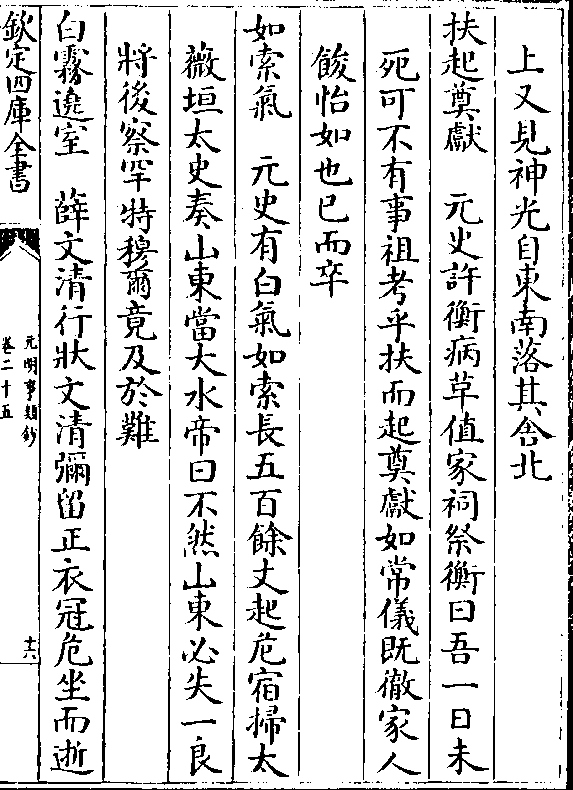 上又見神光自東南落其舍北
扶起奠獻　元史許衡病草值家祠祭衡曰吾一日未
死可不有事祖考乎扶而起奠獻如常儀既徹家人
餕怡如也已而卒
如索氣　元史有白氣如索長五百餘丈起危宿掃太
薇垣太史奏山東當大水帝曰不然山東必失一良
將後察罕特穆爾竟及於難
白霧遶室　薛文清行狀文清彌留正衣冠危坐而逝
欽定四庫全書
元明事類鈔
卷二十五
十六